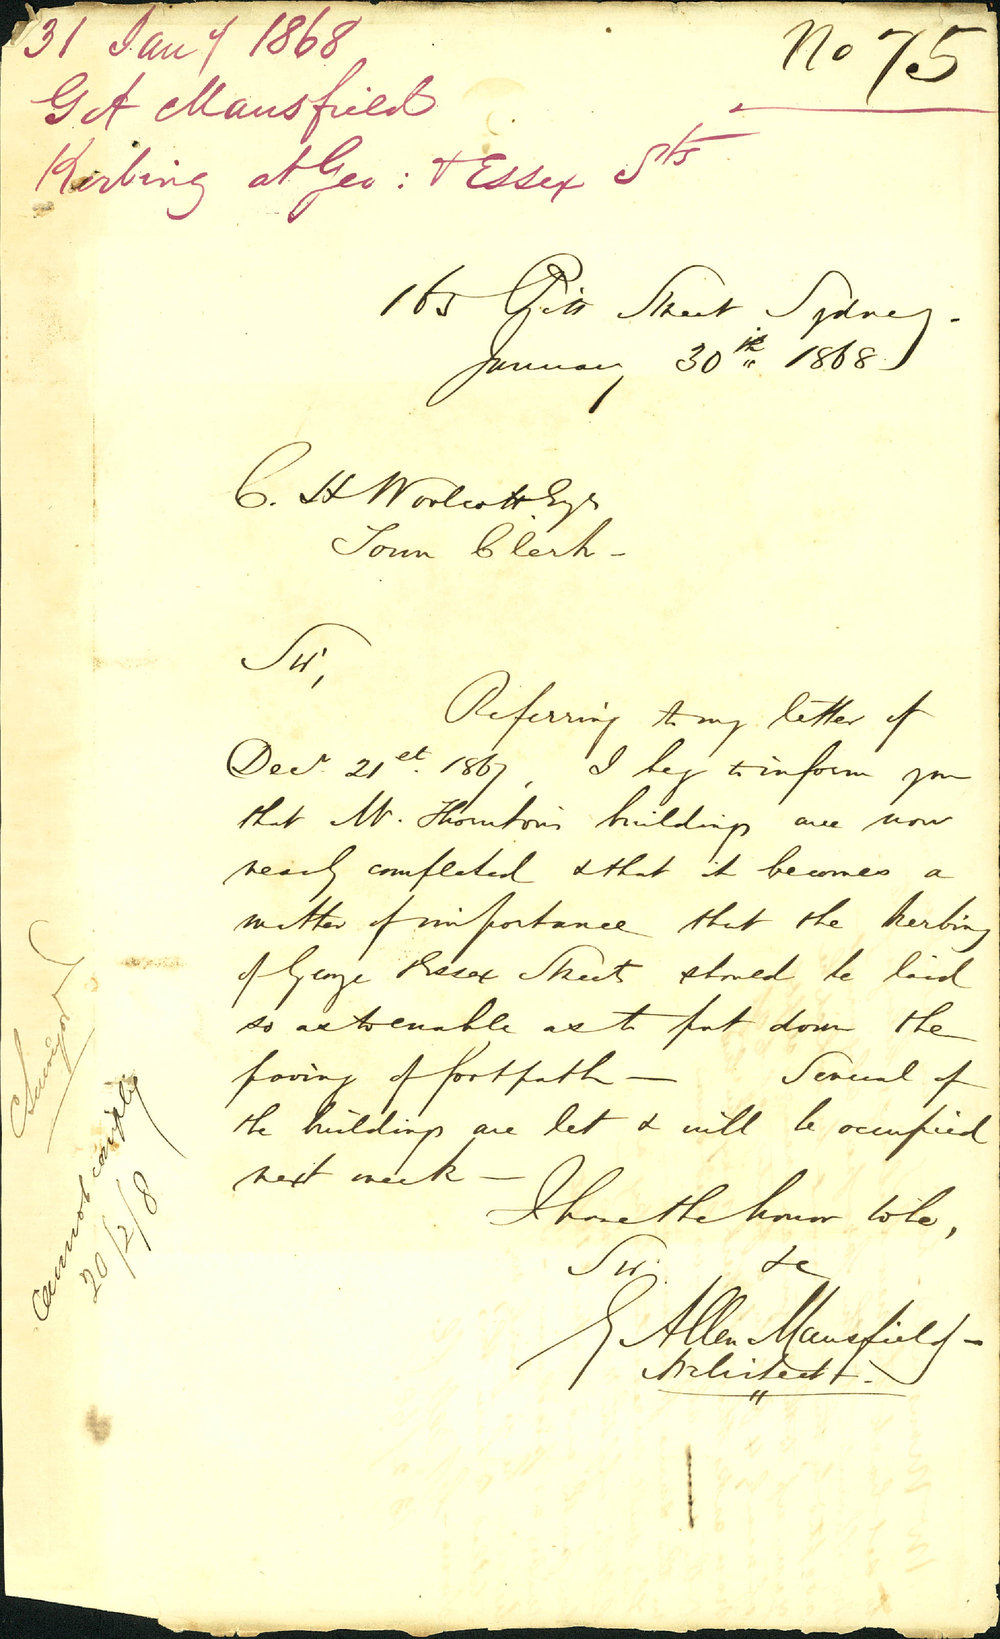 31 Jany 1868
No 75
G A Mansfield
Kerbing at Geo: & Essex Sts
165 Pitt Street Sydney -
January 30th 1868
C. H Woolcott Esqr
Town Clerk -
Sir,
Referring to my letter of
Decr. 21st. 1867, I beg to inform you
that Mr. Thornton's buildings are now
nearly completed & that it becomes a
matter of importance that the kerbing
of George & Essex Streets should be laid
so as to enable us to put down the
paving of footpath - Several of
the buildings are let & will be occupied
next week -
I have the honor to be,
Sir. &c
G Allen Mansfield -
Architect.
Surveyor
Cannot comply
20/2/8